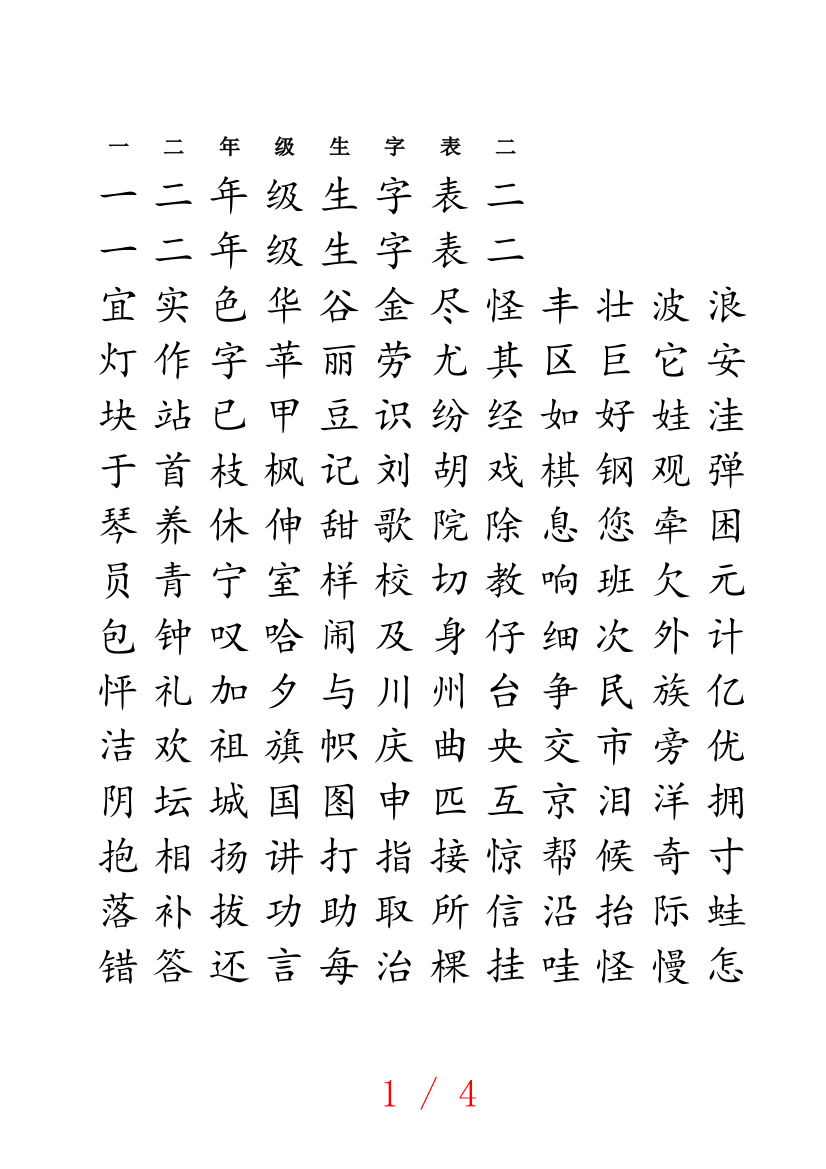 一二年级生字表二
一二年级生字表二
一二年级生字表二
宜实色华谷金尽怪丰壮波浪
灯作字苹丽劳尤其区巨它安
块站已甲豆识纷经如好娃洼
于首枝枫记刘胡戏棋钢观弹
琴养休伸甜歌院除息您牵困
员青宁室样校切教响班欠元
包钟叹哈闹及身仔细次外计
怦礼加夕与川州台争民族亿
洁欢祖旗帜庆曲央交市旁优
阴坛城国图申匹互京泪洋拥
抱相扬讲打指接惊帮候奇寸
落补拔功助取所信沿抬际蛙
错答还言每治棵挂哇怪慢怎
1 / 4